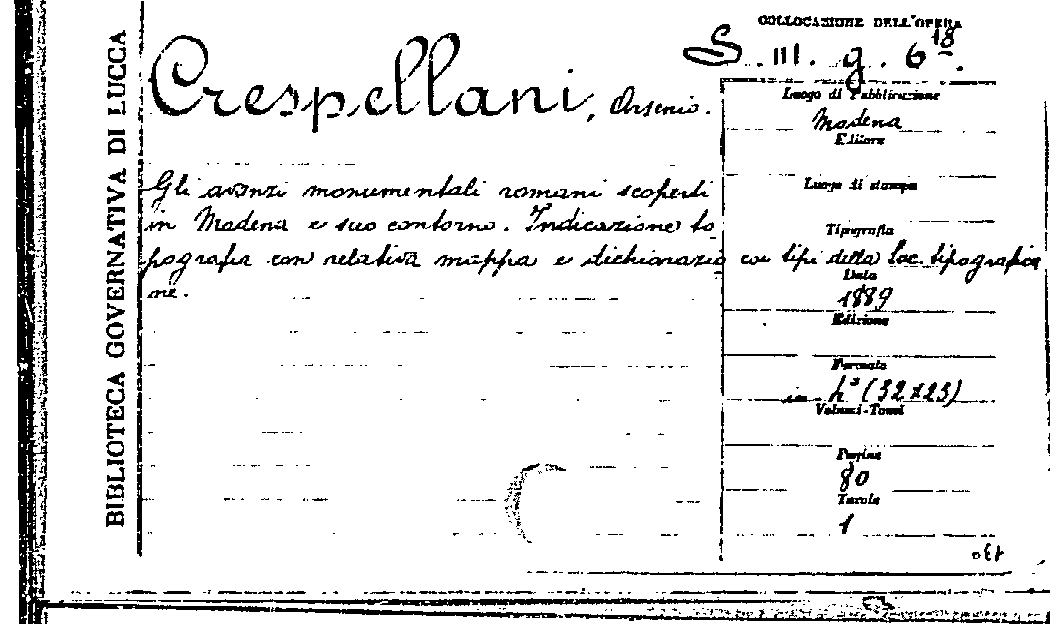 BIBLIOTECA GOVERNATIVA DI LUCCA
COLLOCAZIONE DELL'OPERA
S. III. g. 6 18.
Crespellani, Arsenio.
Gli avanzi monumentali romani scoperti
in Modena e suo contorno. Indicazione to
pografia con relativa mappa e dichiarazio
ne.
Luogo di Pubblicazione
Modena
Editore
Luogo di stampa
Tipografia
coi tipi della Soc. tipografica
Data
1889
Edizione
Formato
in 4° (32x23)
Volumi-Tomi
Pagine
80
Tavole
1